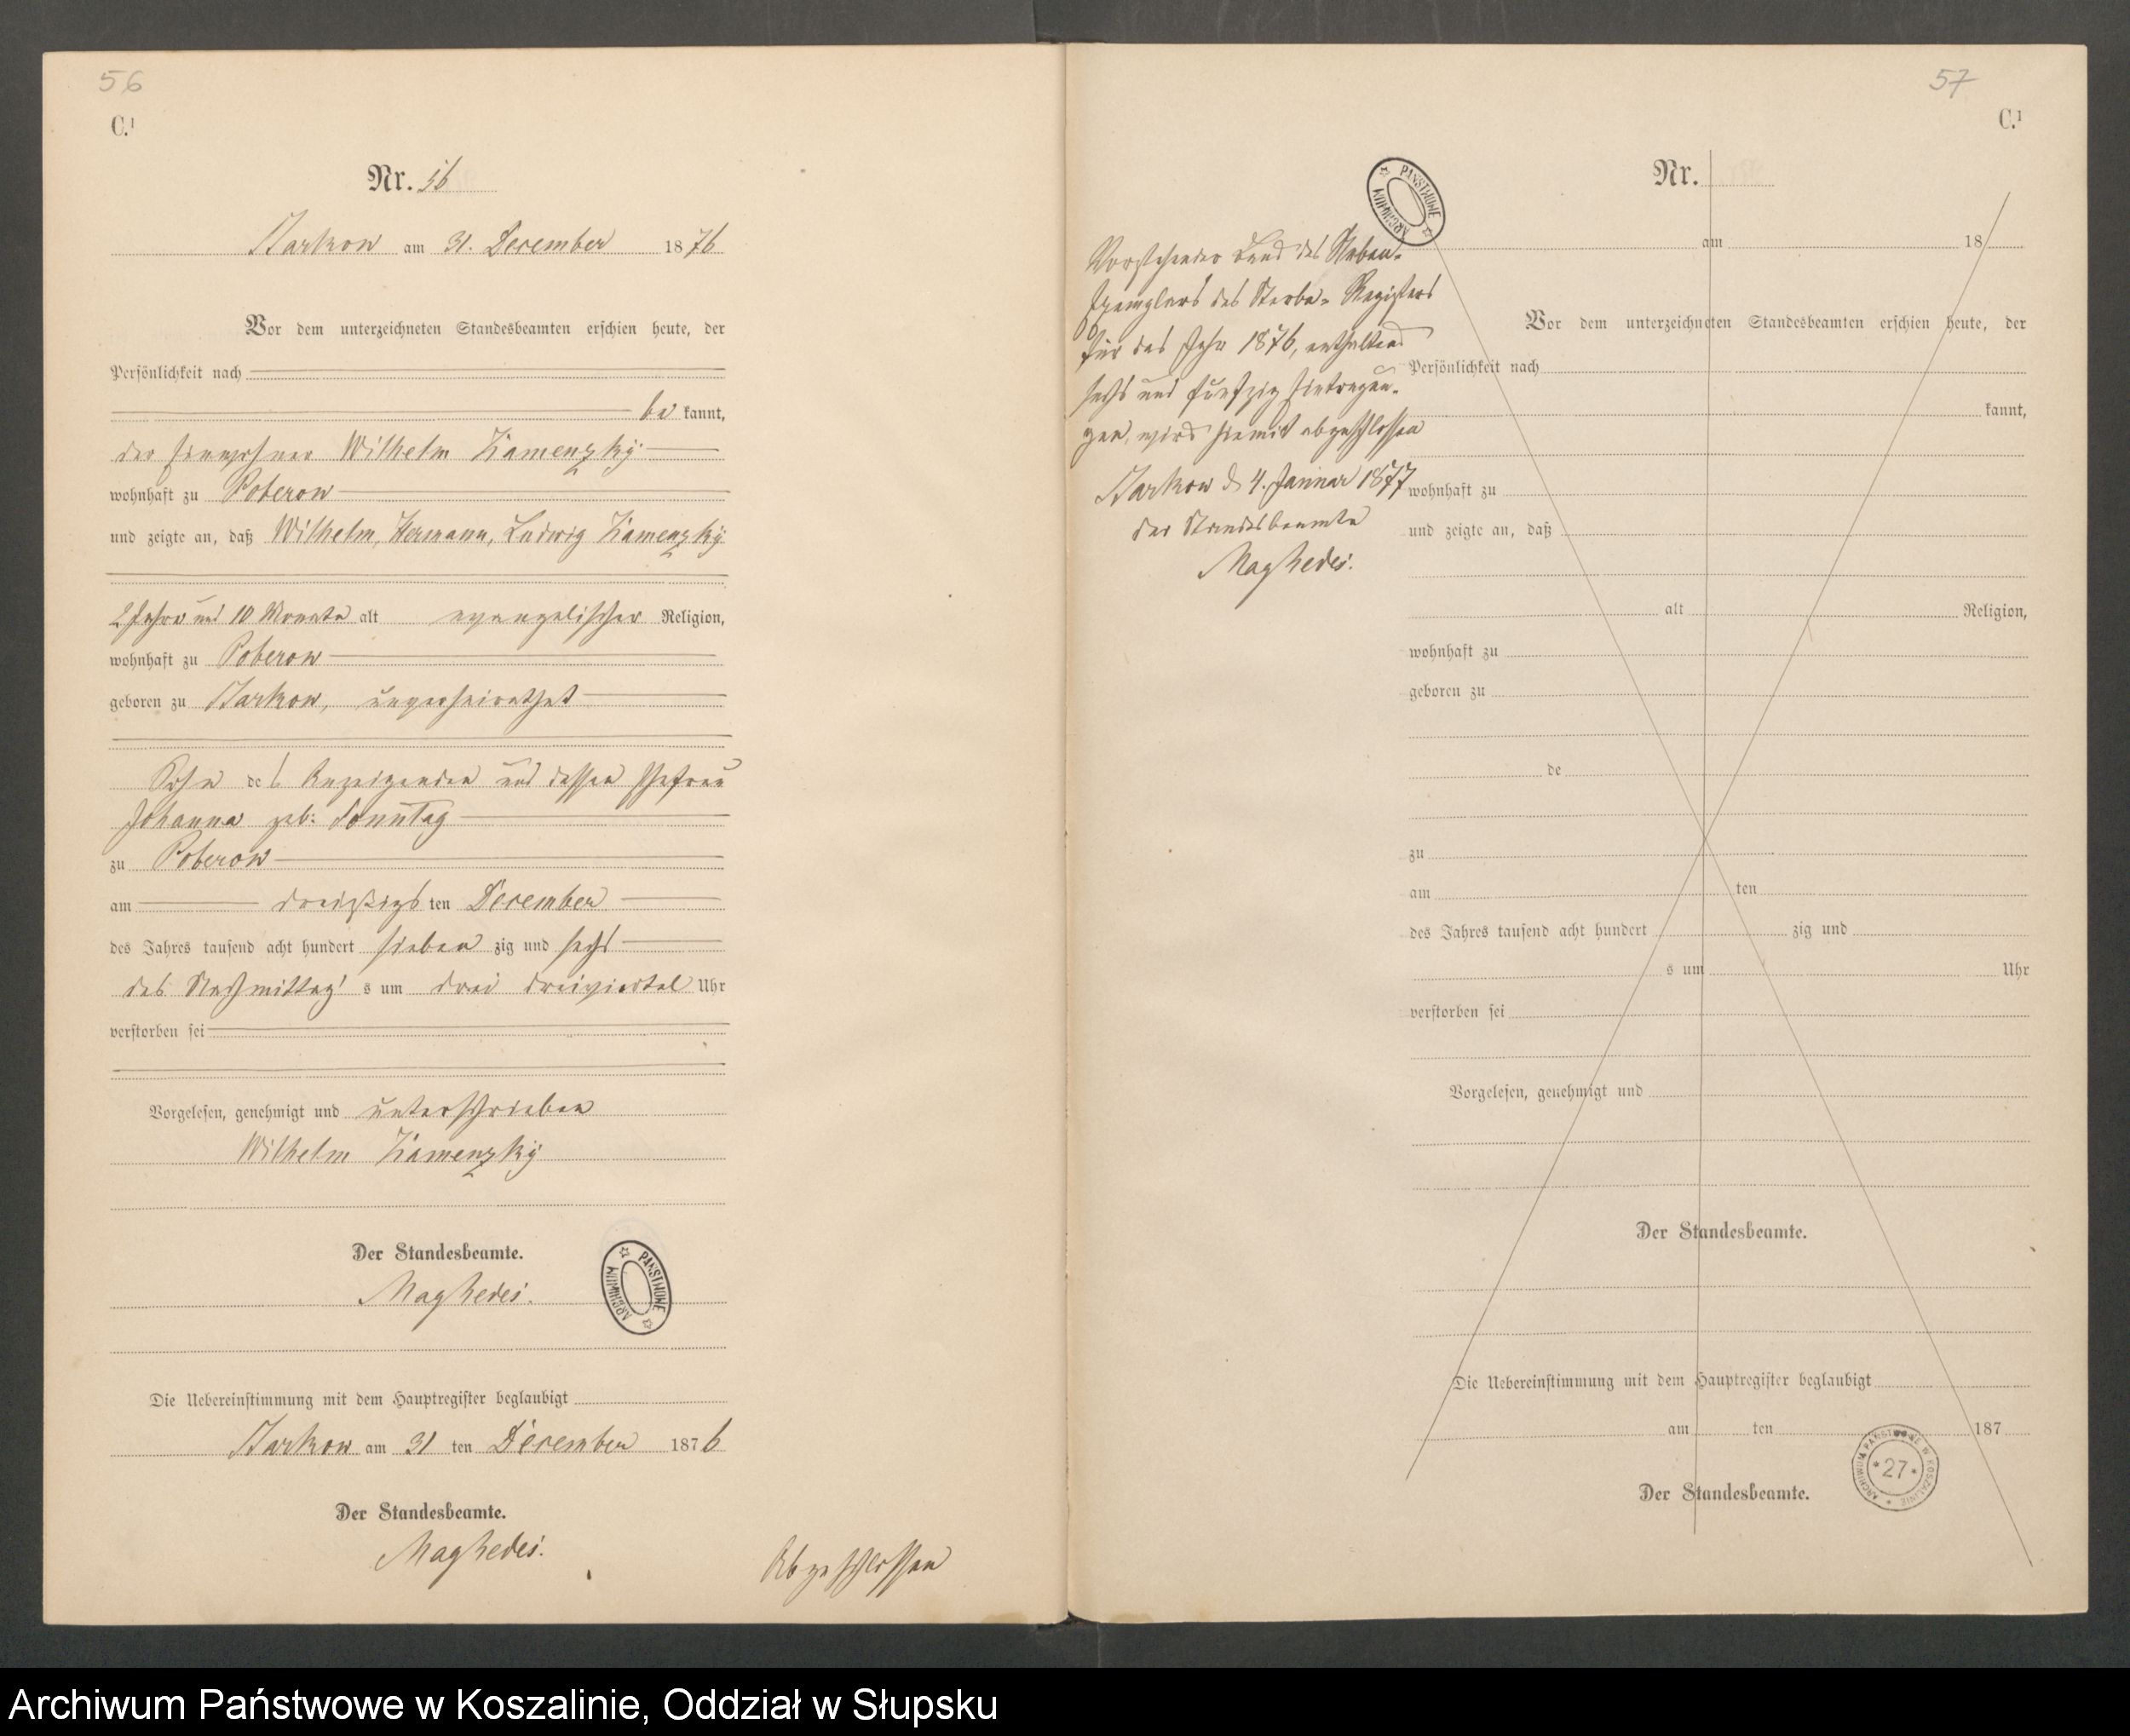 56
C.¹
Nr. 56
Starkow am 31. December 1876
Vor dem unterzeichneten Standesbeamten erschien heute, der
Persönlichkeit nach
be kannt,
der Einwohner Wilhelm Kamenzky
wohnhaft zu Poberow
und zeigte an, daß Wilhelm, Hermann, Ludwig Kamenzky
2 Jahre und 10 Monate alt evangelischer Religion,
wohnhaft zu Poberow
geboren zu Starkow, unverheirathet
Sohn des Anzeigenden und dessen Ehefrau
Johanna geb: Sonntag
zu Poberow
am dreißigsten December
des Jahres tausend acht hundert sieben zig und sechs
des Nachmittag s um drei dreiviertel Uhr
verstorben sei
Vorgelesen, genehmigt und unterschrieben
Wilhelm Kamenzky
Der Standesbeamte.
PAŃSTWOWE ARCHIWUM
Die Uebereinstimmung mit dem Hauptregister beglaubigt
Starkow am 31 ten December 1876
Der Standesbeamte.
Abgeschlossen
57
C.¹
Nr.
PAŃSTWOWE ARCHIWUM
am 18
Vorstehender Band des Neben-
Exemplars des Sterbe-Registers
für das Jahr 1876, enthaltend
sechs und fünfzig Eintragun-
gen, wird hiemit abgeschlossen
Starkow d. 4. Januar 1877
der Standesbeamte
Vor dem unterzeichneten Standesbeamten erschien heute, der
Persönlichkeit nach
kannt,
wohnhaft zu
und zeigte an, daß
alt Religion,
wohnhaft zu
geboren zu
de
zu
am ten
des Jahres tausend acht hundert zig und
s um Uhr
verstorben sei
Vorgelesen, genehmigt und
Der Standesbeamte.
Die Uebereinstimmung mit dem Hauptregister beglaubigt
am ten 187
ARCHIWUM PAŃSTWOWE W KOSZALINIE * 27 *
Der Standesbeamte.
Archiwum Państwowe w Koszalinie, Oddział w Słupsku